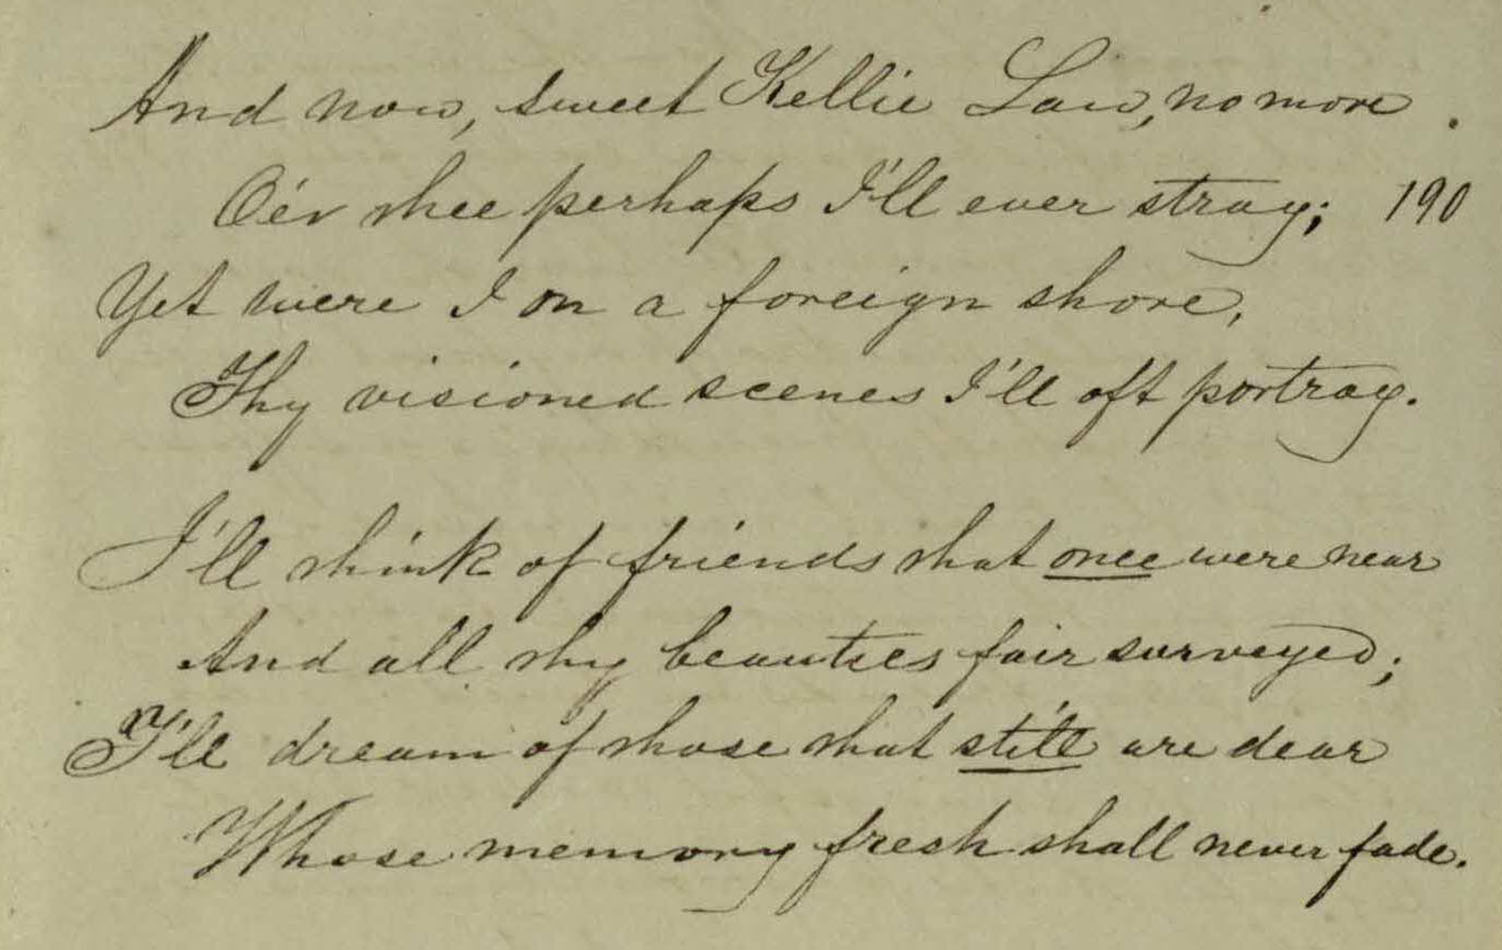 And now, sweet Kellie Law, no more.
O'er thee perhaps I'll ever stray; 190
Yet were I on a foreign shore,
Thy visioned scenes I'll oft portray.
I'll think of friends that once were near
And all thy beauties fair surveyed;
I'll dream of those that still are dear
Whose memory fresh shall never fade.